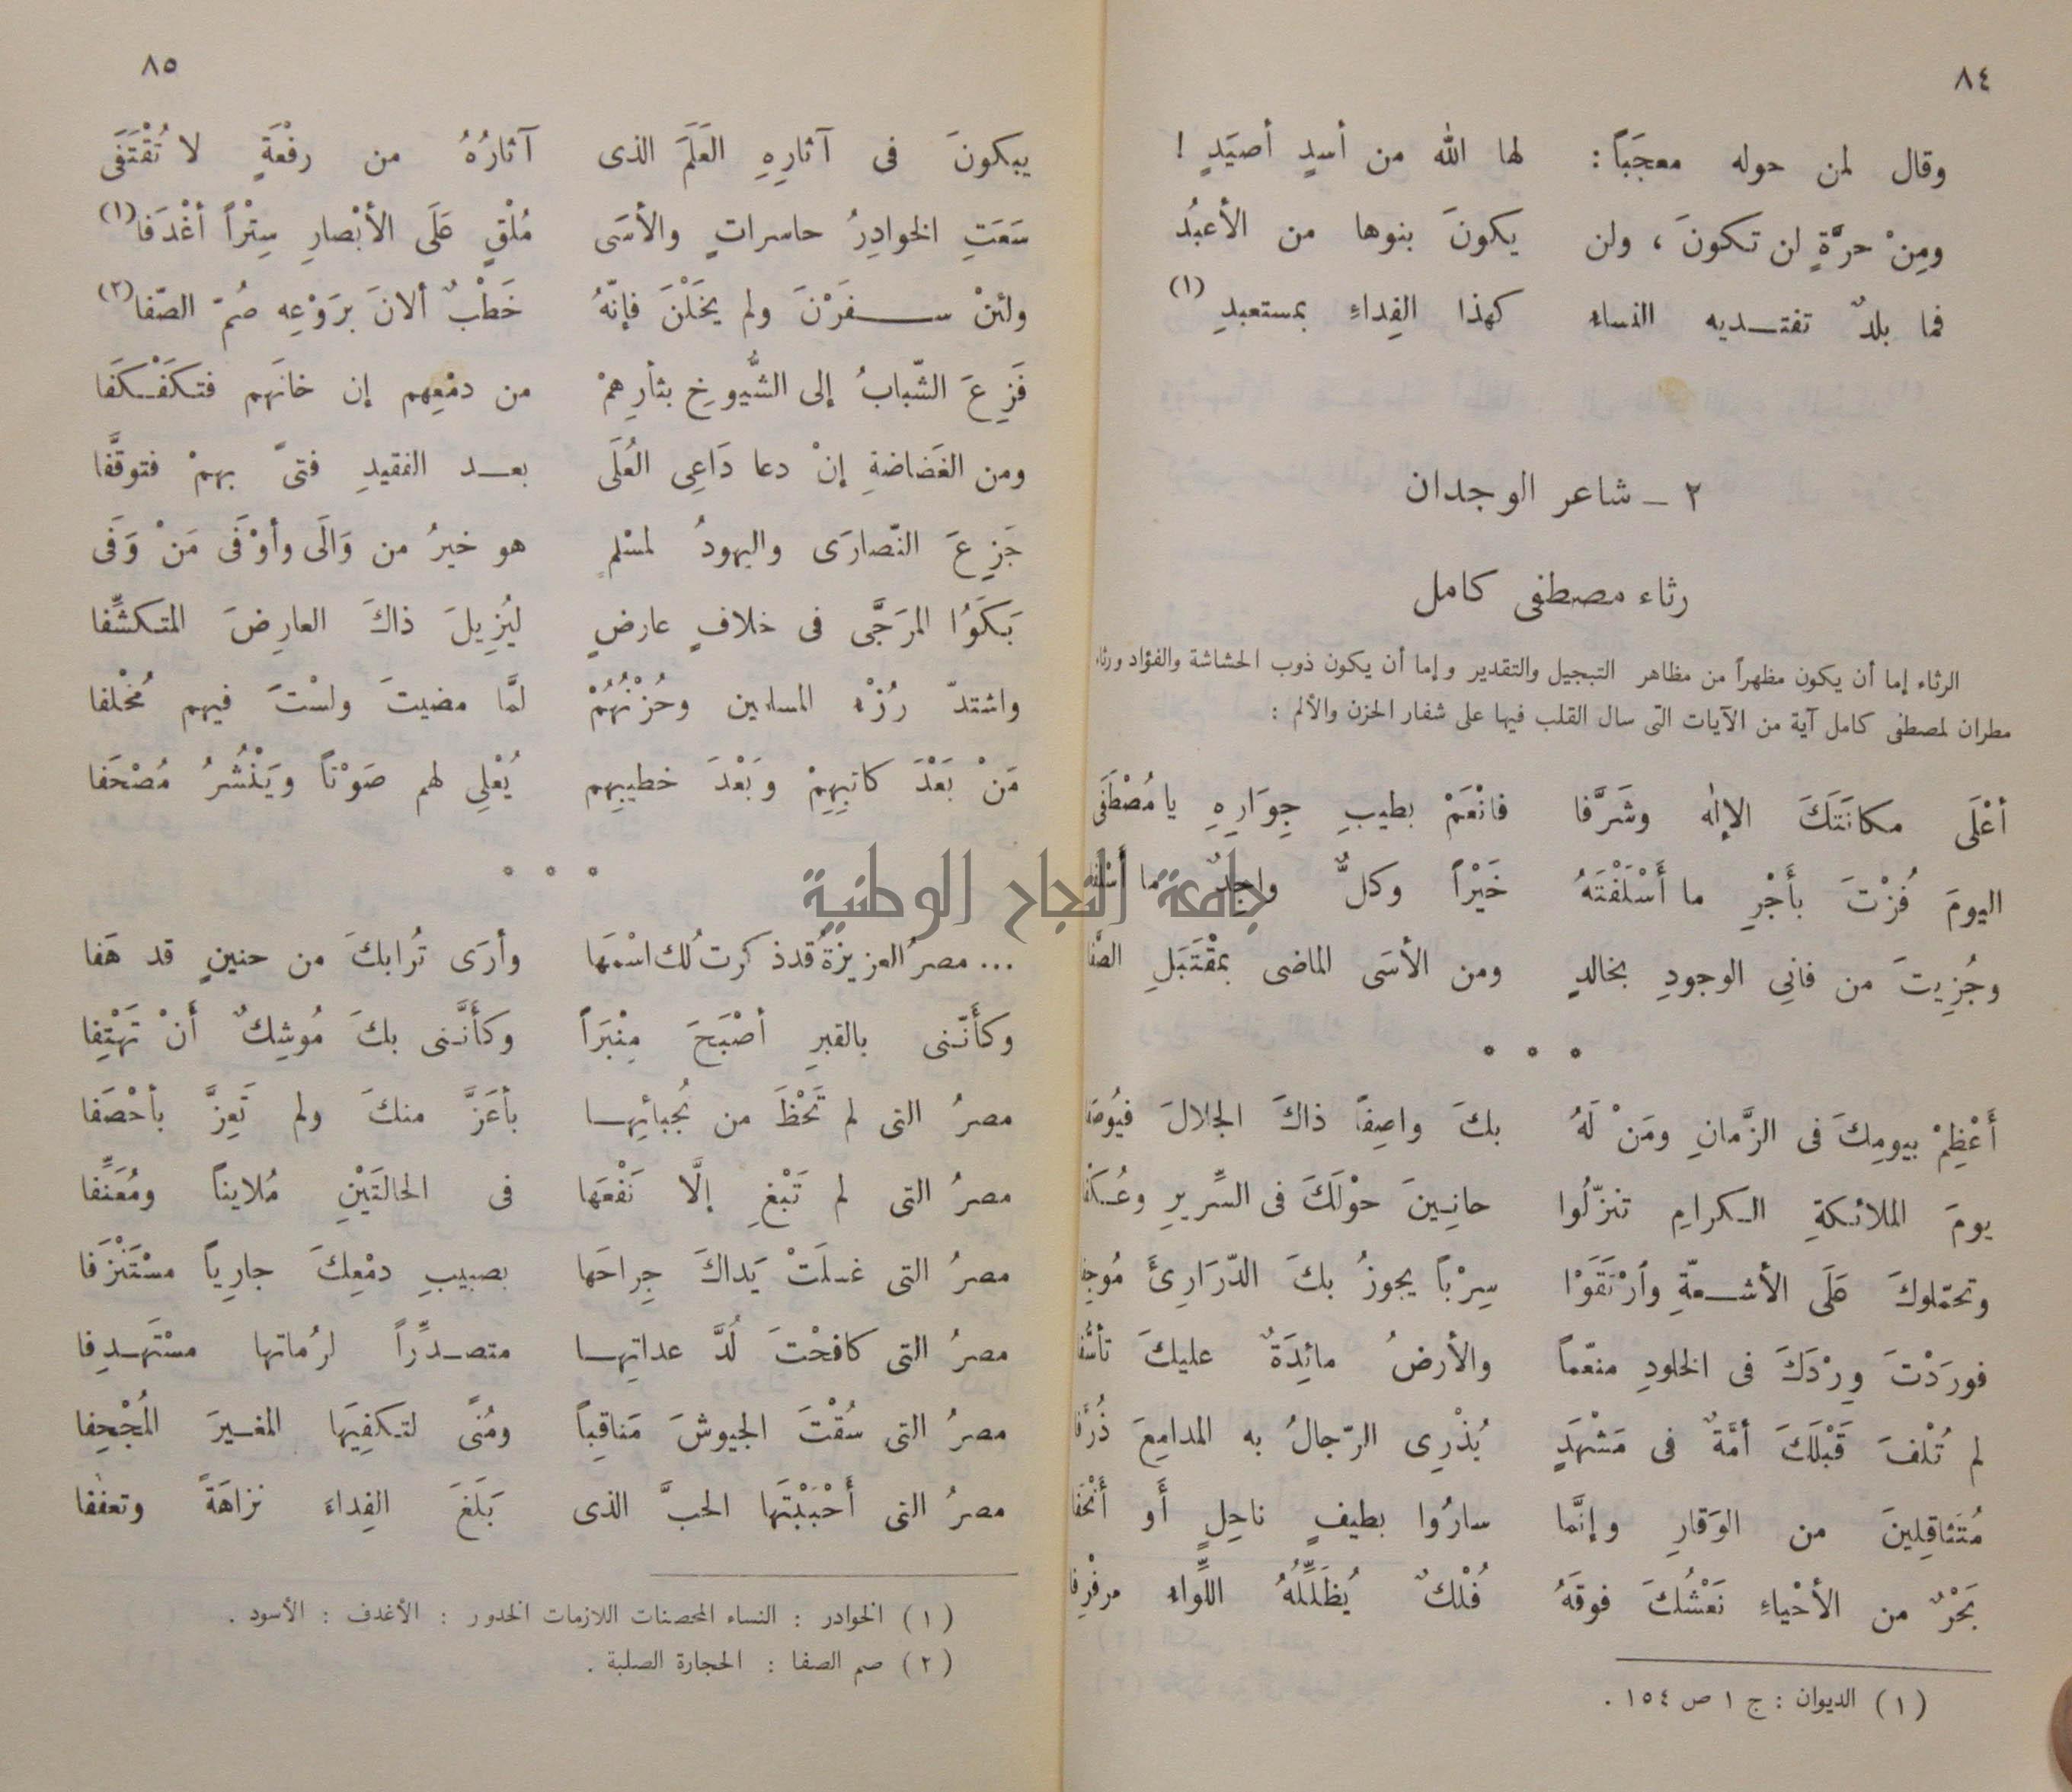 ٨٤
وقال لمن حوله معجَبَاً : لها الله من أسدٍ أصيَدٍ !
ومِنْ حرَّةٍ لن تكونَ ، ولن يكونَ بنوها من الأعبُد
فما بلدٌ تفتـديه النساء كهذا الفِداءِ بمستعبدِ (١)
٢ ـ شاعر الوجدان
رثاء مصطفى كامل
الرثاء إما أن يكون مظهراً من مظاهر التبجيل والتقدير وإما أن يكون ذوب الحشاشة والفؤاد ورثاء
مطران لمصطفى كامل آية من الآيات التى سال القلب فيها على شفار الحزن والألم :
أعْلَى مكانَتَكَ الإلٰه وشَرَّفا فانْعَمْ بطيبِ جِوَارِهِ يا مُصْطَفَى
اليومَ فُزْتَ بأَجْرِ ما أَسْلَفْتَهُ خَيْراً وكلٌّ واجدٌ ما
وجُزِيتَ من فانِى الوجودِ بخالدٍ ومن الأسَى الماضى بمقْتَبَلِ
أَعْظِمْ بيومِكَ فى الزَّمانِ ومَنْ لَهُ بكَ واصِفاً ذاكَ الجلالَ
يومَ الملائكةِ الكرامِ تنزّلُوا حانِينَ حوْلَكَ فى السَّريرِ
وتحمّلوكَ عَلَى الأشـعّةِ وارْتَقَوْا سِرْباً يجوزُ بكَ الدّرَارِىَٔ
فورَدْتَ وِرْدَكَ فى الخلودِ منعّماً والأرضُ مائِدَةٌ عليكَ
لم تُلْفَ قَبْلَكَ أمَّةٌ فى مَشْهَدٍ يُذْرِى الرّجالُ به المدامِعَ
مُتَثاقِلِينَ من الوَقارِ وإنَّما سارُوا بطيفٍ ناحِلٍ أَو
بَحْرٌ من الأحْياءِ نَعْشُكَ فوقَهُ فُلْكٌ يُظَلِّلُهُ اللِّواء
(١) الديوان : ج ١ ص ١٥٤ .
٨٥
يبكونَ فى آثارِهِ العَلَمَ الذى آثارُهُ من رفْعَةٍ لا تُقْتَفَى
سَعَتِ الخوادِرُ حاسراتٍ والأسَى مُلْقٍ عَلَى الأبْصارِ سِتْراً أغْدَفا (١)
ولئنْ سـفَرْنَ ولم يخَلْنَ فإنّهُ خَطْبٌ ألانَ بَروْعِه صُمّ الصّفا (٢)
فَزِعَ الشّبابُ إلى الشُّيوخِ بثأرِهمْ من دمْعِهم إن خانَهم فتكَفْكَفَا
ومن الغَضاضةِ إنْ دعا دَاعِى العُلَى بعـد الفقيدِ فتىً بهمْ فتوقَّفا
جَزِعَ النّصارَى واليهودُ لمسْلمٍ هو خيرُ من وَالَى وأوْفَى مَنْ وَفَى
بَكَوُا المرَجَّى فى خلافٍ عارضٍ ليُزِيلَ ذاكَ العارِضَ المتكشِّفا
واشتدّ رُزْء المسلمين وحُزْنُهُمْ لمَّا مضيتَ ولسْتَ فيهم مُخْلفا
مَنْ بَعْدَ كاتبِهِمْ وبَعْدَ خطيبِهم يُعْلِى لهم صَوْتاً ويَنْشُرُ مُصْحَفا
... مصرُ العزيزةُ قد ذكرتُ لك اسْمَها وأرَى تُرابكَ من حنينٍ قد هَفا
وكأَنّنى بالقبرِ أصْبَحَ مِنْبَراً وكأنّنى بكَ مُوشِكٌ أَنْ تَهْتِفا
مصرُ التى لم تَحْظَ من نُجبائِهـا بأعَزَّ منكَ ولم تَعِزَّ بأحْصَفا
مصرُ التى لم تَبْغِ إلَّا نَفْعَها فى الحالَتَيْنِ مُلايناً ومُعَنِّفا
مصرُ التى غسلَتْ يَداكَ جِراحَها بصبيبِ دمْعِكَ جارِياً مسْتَنْزَفا
مصرُ التى كافحْتَ لُدَّ عداتِهـا متصـدِّراً لرُماتها مسْتَهـدِفا
مصرُ التى سُقْتَ الجيوشَ مَناقِباً ومُنًى لتكفِيَها المغـيرَ المُجْحِفا
مصرُ التى أَحْبَبْتَها الحبَّ الذى بَلَغَ الفِداءَ نزاهَةً وتعففا
(١) الخوادر : النساء المحصنات اللازمات الخدور : الأغدف : الأسود .
(٢) صم الصفا : الحجارة الصلبة .
جامعة النجاح الوطنية